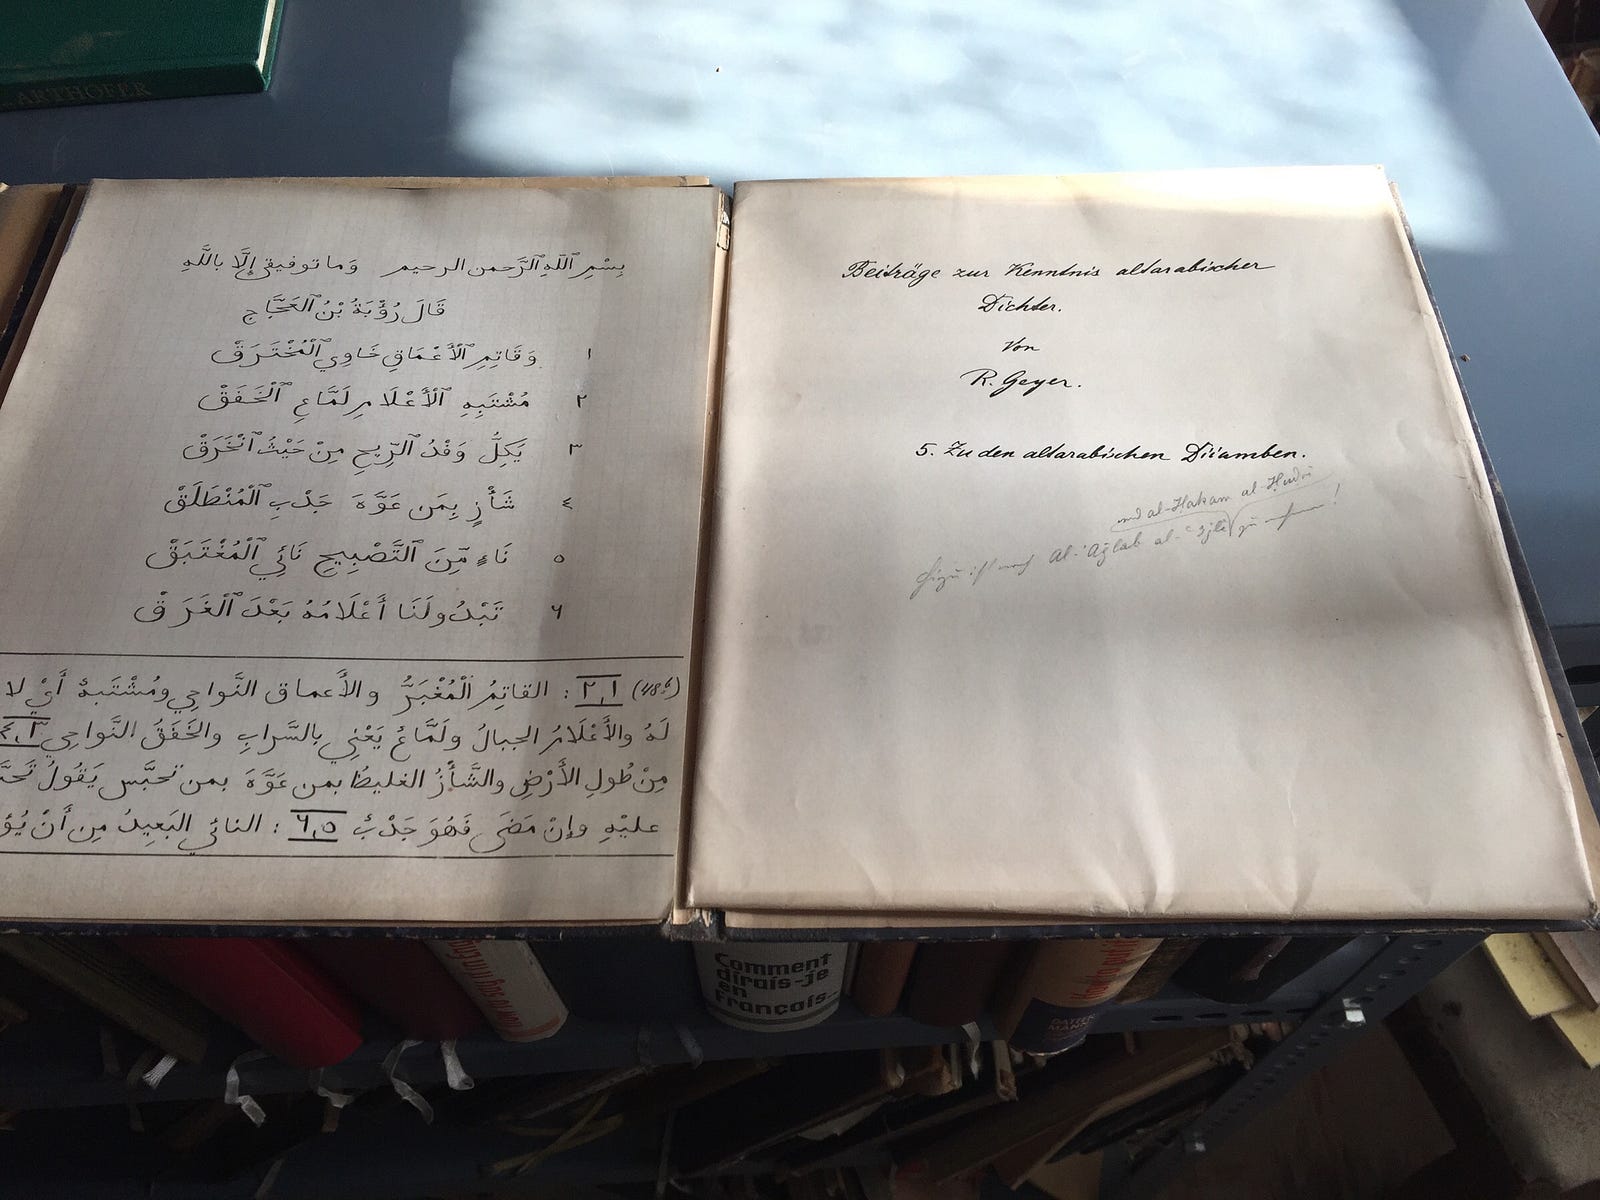 ARTHOFER
بِسْمِ ٱللَّهِ ٱلرَّحمن الرحيم وَما توفيقي إِلَّا بِاللَّهِ
قَالَ رُؤْبَةُ بْنُ ٱلْعَجَّاجِ
١ وَقَاتِمِ ٱلْأَعْمَاقِ خَاوِي ٱلْمُخْتَرَقْ
٢ مُشْتَبِهِ ٱلْأَعْلَامِ لَمَّاعِ ٱلْخَفَقْ
٣ يَكِلُّ وَفْدُ ٱلرِّيحِ مِنْ حَيْثُ ٱنْخَرَقْ
٤ شَأْزٍ بِمَن عَوَّهَ جَدْبِ ٱلْمُنْطَلَقْ
٥ نَاءٍ مِّنَ ٱلتَّصْبِيحِ نَائِي ٱلْمُغْتَبَقْ
٦ تَبْدُو لَنَا أَعْلَامُهُ بَعْدَ ٱلْغَرَقْ
١,٢ : القاتِمُ ٱلْمُغْبَرُّ والأَعماق النَّواحِي ومُشْتَبِهٌ أَيْ لا
لَهُ والأَعْلَامُ الجبالُ ولَمَّاعُ يَعْنِي بالسَّرابِ والخَفَقُ النَّواحِي ٣,٤
مِنْ طُولِ الأَرْضِ والشَّأْزُ الغليظُ بمن عَوَّهَ بمن تحبَّس يَقُولُ
عليْهِ وإنْ مَضَى فَهُوَ جَدْبٌ ٥,٦ : النائي البَعِيدُ مِن أَنْ
Beiträge zur Kenntnis altarabischer
Dichter.
Von
R. Geyer.
5. Zu den altarabischen Diiamben.
und al-Hakam al-Hudri
al-Aġlab al-ʿIjli
Comment
dirais-je
en
Français...